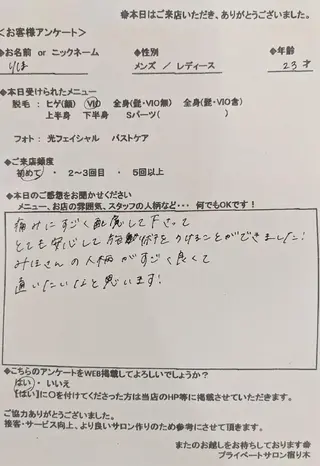 ◆本日はご来店いただき、ありがとうございました。
＜お客様アンケート＞
◆お名前 or ニックネーム ◆性別 ◆年齢
りほ メンズ / レディース 23才
◆本日受けられたメニュー
脱毛：ヒゲ(顔) VIO 全身(髭・VIO無) 全身(髭・VIO含)
上半身 下半身 Sパーツ( )
フォト：光フェイシャル バストケア
◆ご来店頻度
初めて ・ 2～3回目 ・ 5回以上
◆本日のご感想をお聞かせください
メニュー、お店の雰囲気、スタッフの人柄など・・・ 何でもOKです！
痛みにすごく配慮して下さって
とても安心して施術をうけることができました!
みほさんの人柄がすごく良くて
通いたいなと思います!
◆こちらのアンケートをWEB掲載してよろしいでしょうか？
はい ・ いいえ
【はい】に○を付けてくださった方は当店のHP等に掲載させていただきます。
ご協力ありがとうございました。
接客・サービス向上、より良いサロン作りのため参考にさせて頂きます。
またのお越しをお待ちしております◆
プライベートサロン宿り木